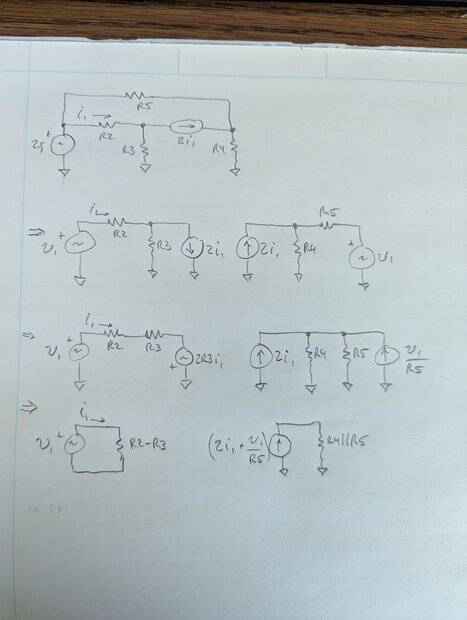 R5
i₁ →
R2
2i₁
v₁ +
R3
R4
⇒ v₁ +
i₁ →
R2
R3
2i₁
2i₁
R4
R5
+ v₁
⇒ v₁ +
i₁ →
R2
R3
+ 2R3i₁
2i₁
R4
R5
v₁/R5
⇒
i₁ →
v₁ +
R2-R3
(2i₁ + v₁/R5)
R4||R5